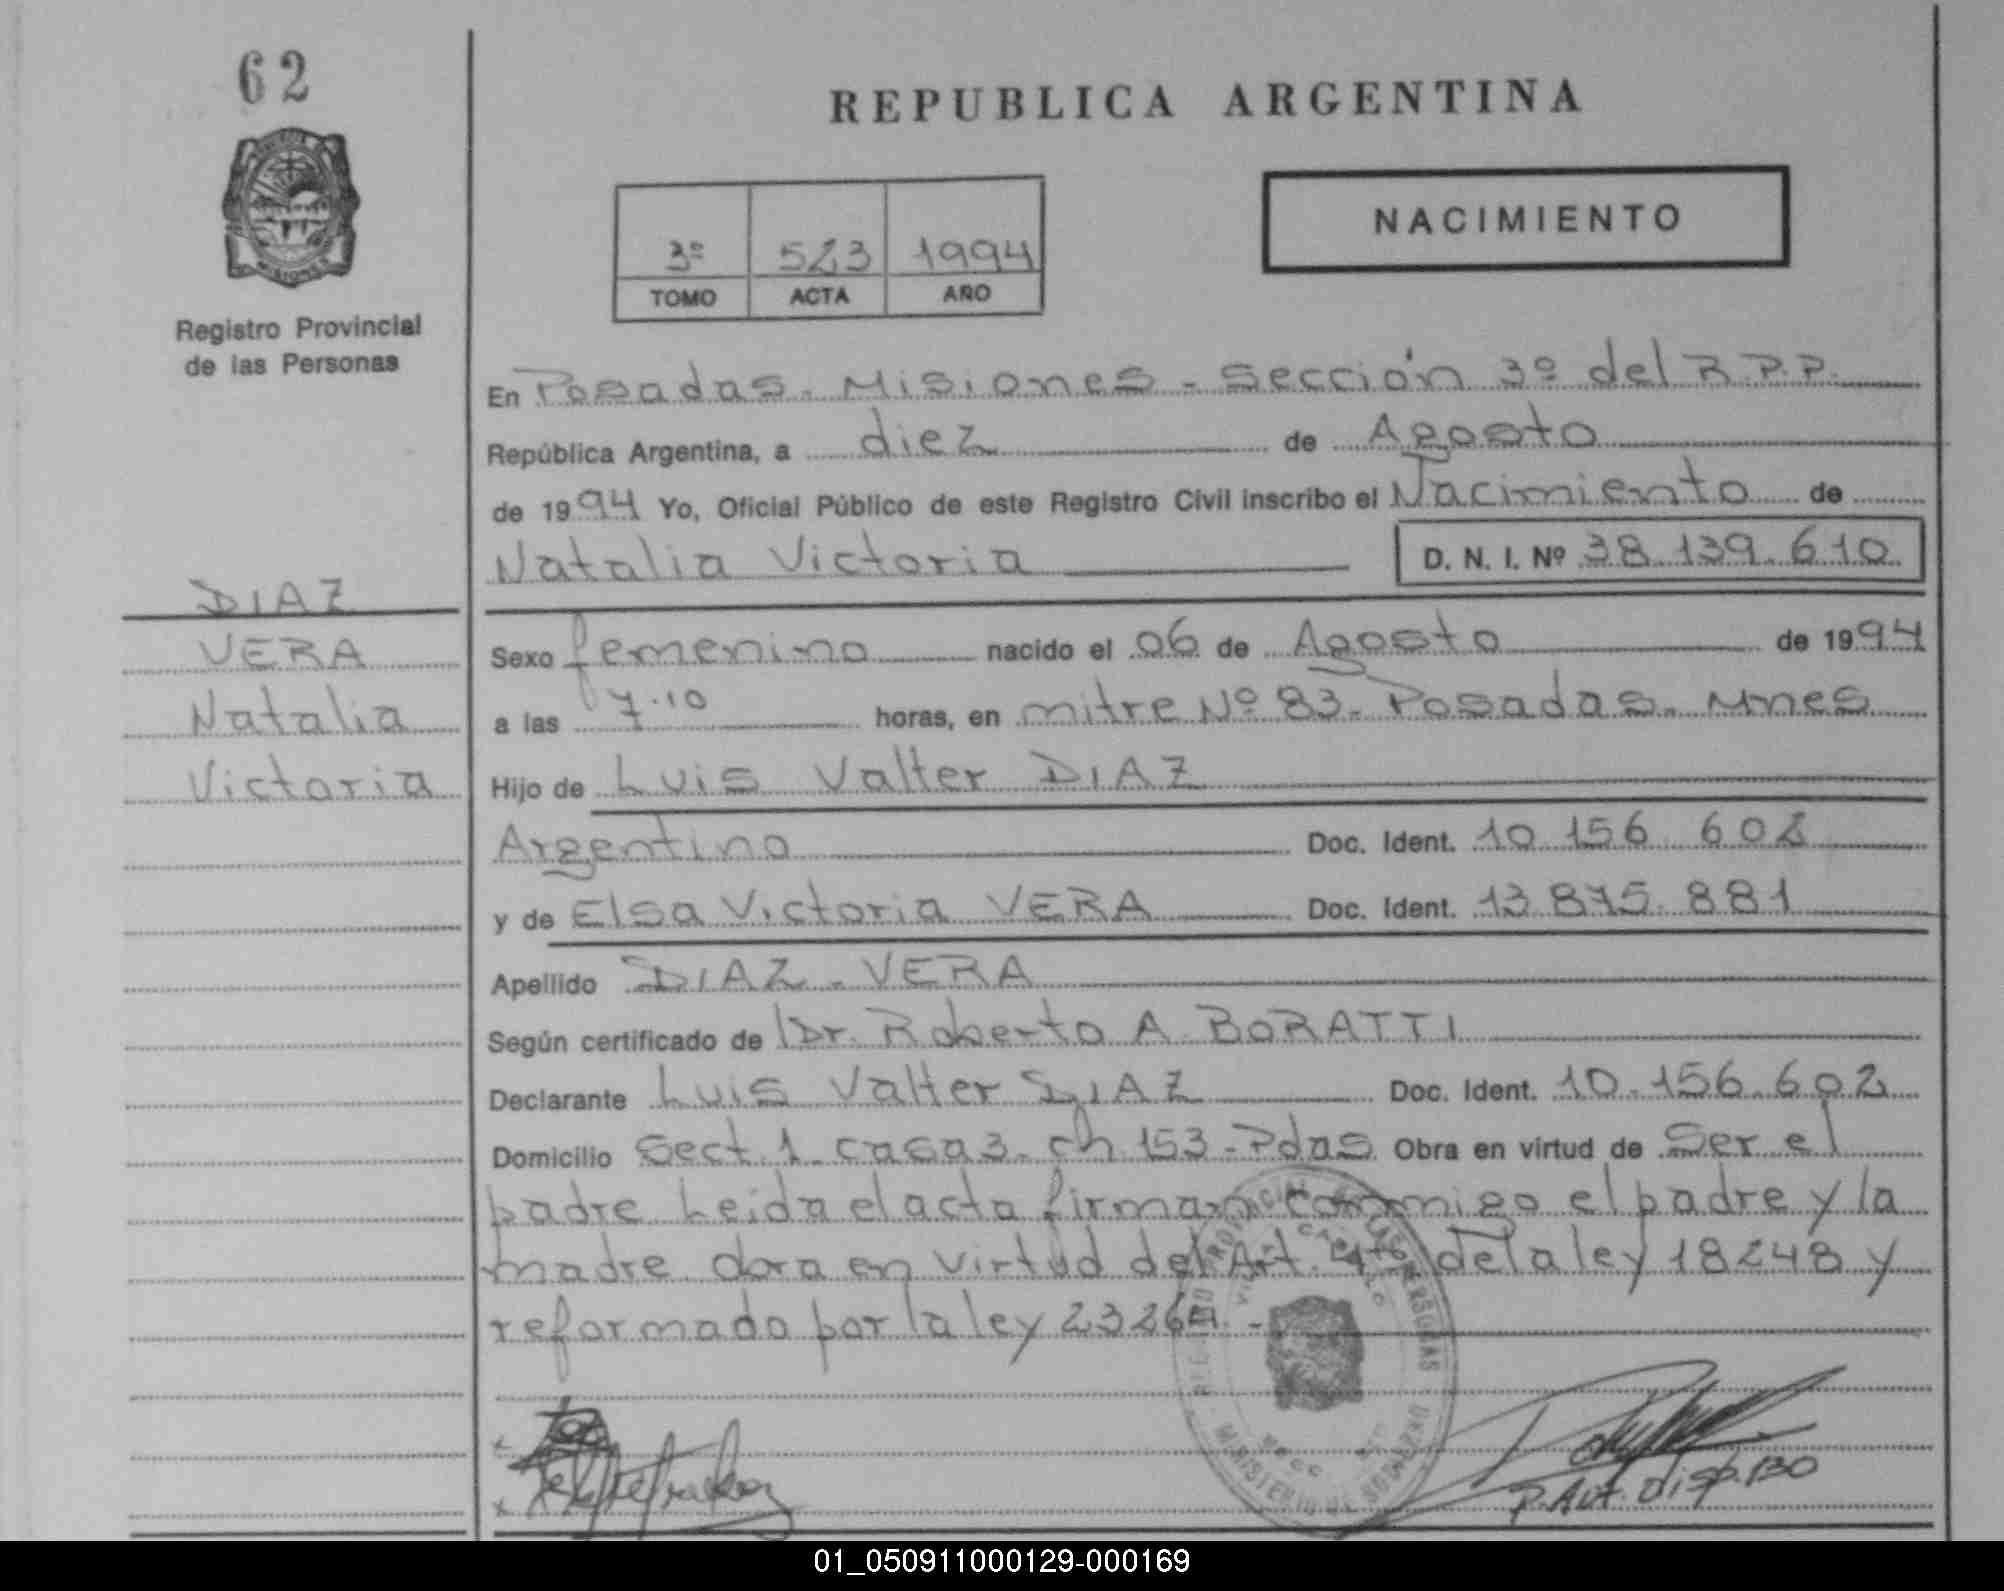 62
REPUBLICA ARGENTINA
NACIMIENTO
3º 523 1994
TOMO ACTA AÑO
MISIONES
Registro Provincial
de las Personas
En Posadas - Misiones - Sección 3º del R.P.P.
República Argentina, a diez de Agosto
de 1994 Yo, Oficial Público de este Registro Civil inscribo el Nacimiento de
Natalia Victoria D. N. I. Nº 38.139.610
DIAZ
VERA
Natalia
Victoria
Sexo femenino nacido el 06 de Agosto de 1994
a las 7.10 horas, en mitre Nº 83 - Posadas - Mnes
Hijo de Luis Valter DIAZ
Argentino Doc. Ident. 10 156 602
y de Elsa Victoria VERA Doc. Ident. 13 875 881
Apellido DIAZ - VERA
Según certificado de Dr. Roberto A. BORATTI
Declarante Luis Valter DIAZ Doc. Ident. 10.156.602
Domicilio Sect. 1 - casa 3 - ch 153 - Pdas Obra en virtud de Ser el
padre Leida el acta firman conmigo el padre y la
madre obra en virtud del Art. 4to de la ley 18248 y
reformado por la ley 23264 -
MINISTERIO DE GOBIERNO
P. Aut. Disp. 130
01_050911000129-000169